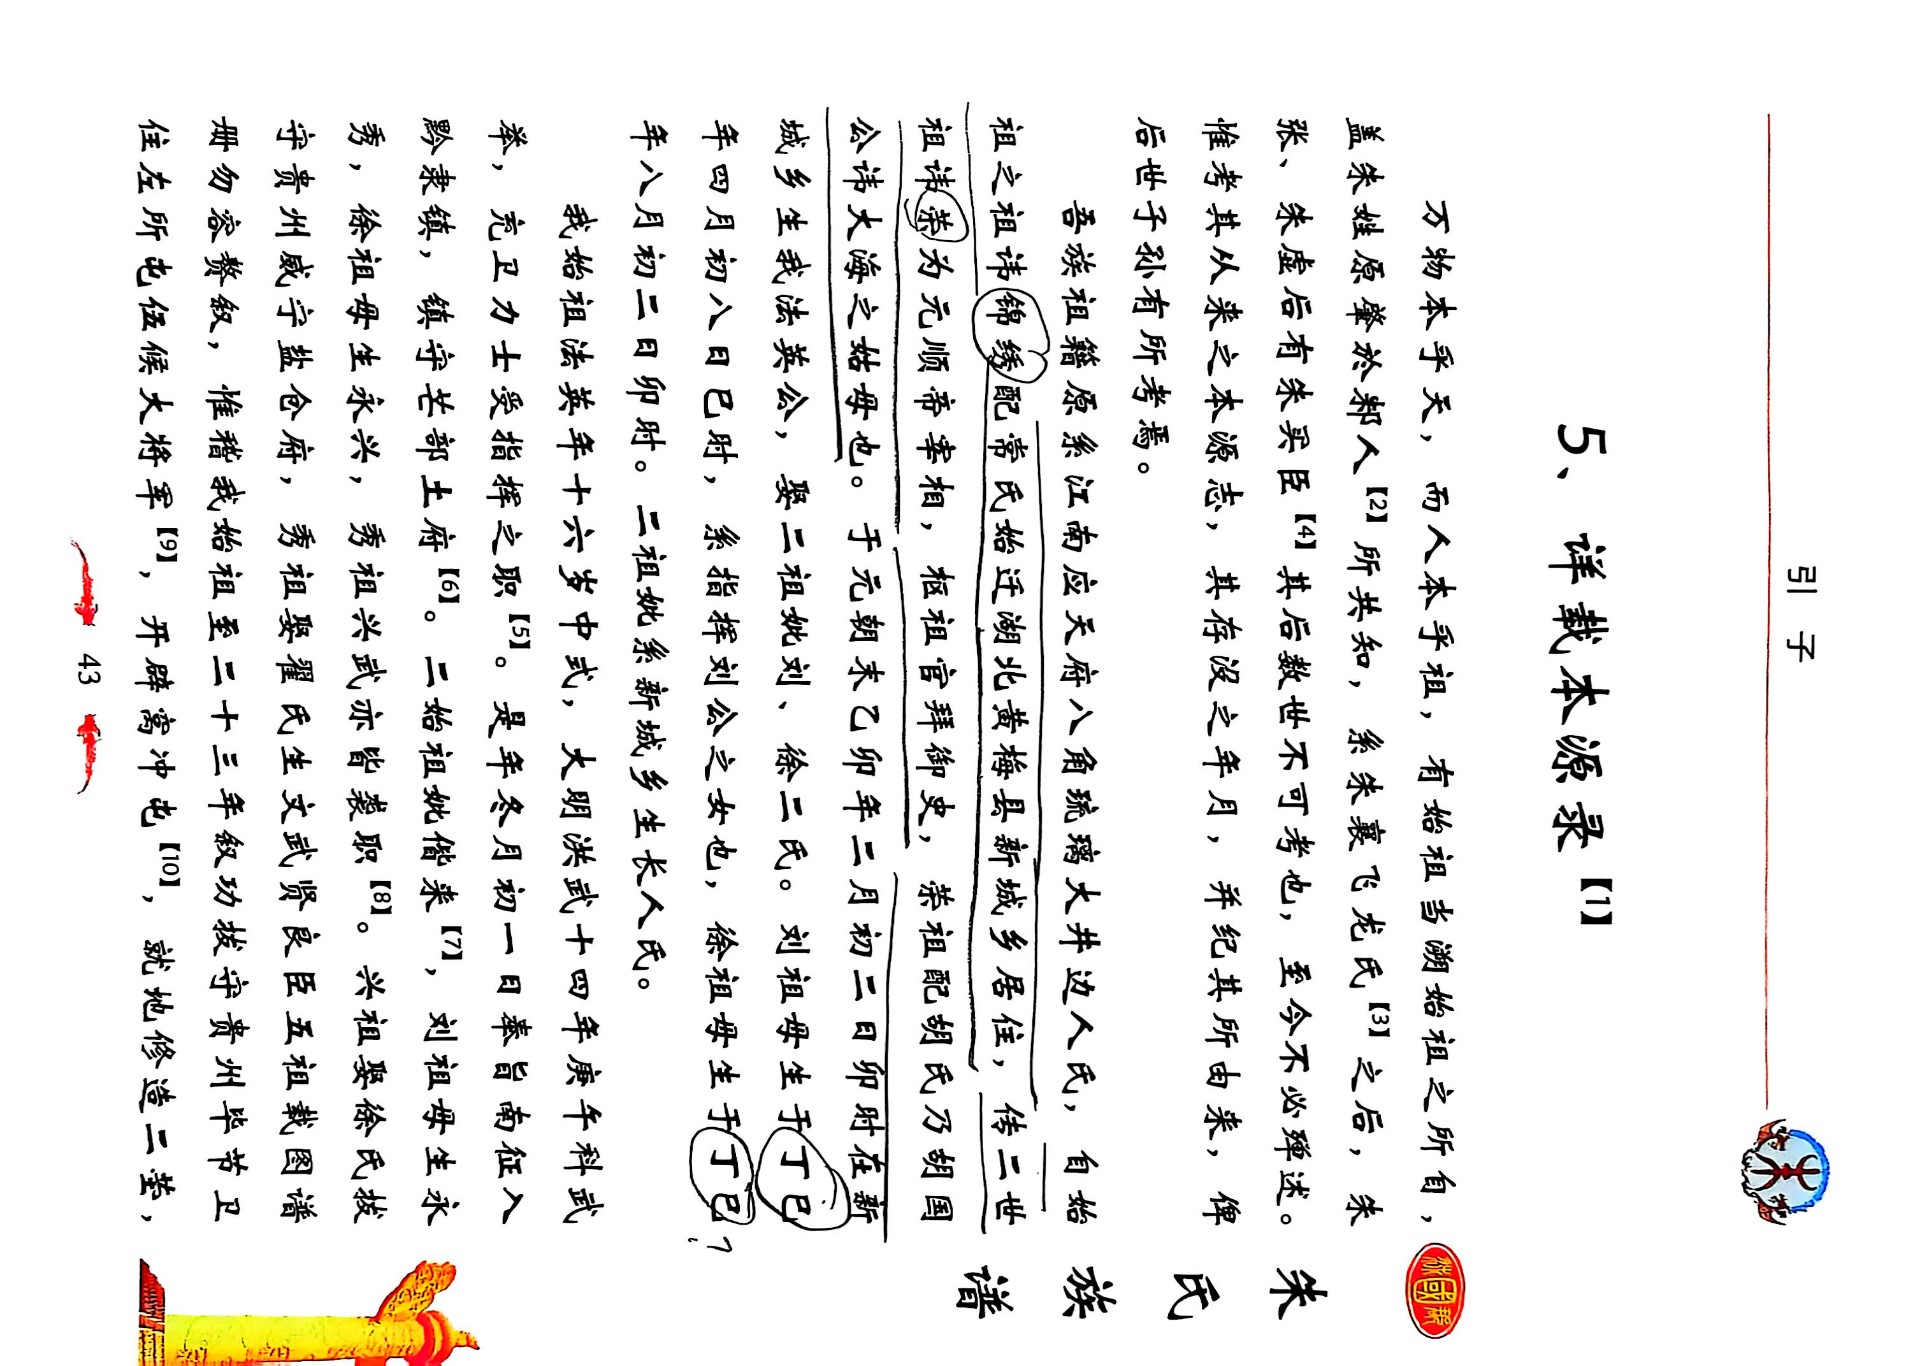 引 子
5、详载本源录【1】
万物本乎天，而人本乎祖，有始祖当溯始祖之所自，
盖朱姓原肇於邾人【2】所共知，系朱襄飞龙氏【3】之后，朱
张、朱虚后有朱买臣【4】其后数世不可考也，至今不必殚述。
惟考其从来之本源志，其存没之年月，并纪其所由来，俾
后世子孙有所考焉。
吾族祖籍原系江南应天府八角琉璃大井边人氏，自始
祖之祖讳锦绣配常氏始迁湖北黄梅县新城乡居住，传二世
祖讳荣为元顺帝宰相，枢祖官拜御史，荣祖配胡氏乃胡国
公讳大海之姑母也。于元朝末乙卯年二月初二日卯时在新
城乡生我法英公，娶二祖妣刘、徐二氏。刘祖母生于丁巳
年四月初八日巳时，系指挥刘公之女也，徐祖母生于丁巳
年八月初二日卯时。二祖妣系新城乡生长人氏。
我始祖法英年十六岁中式，大明洪武十四年庚午科武
举，充卫力士受指挥之职【5】。是年冬月初一日奉旨南征入
黔隶镇，镇守芒部土府【6】。二始祖妣偕来【7】，刘祖母生永
秀，徐祖母生永兴，秀祖兴武亦皆袭职【8】。兴祖娶徐氏拔
守贵州威宁盐仓府，秀祖娶翟氏生文武贤良臣五祖载图谱
册勿容赘叙，惟稽我始祖至二十三年叙功拔守贵州毕节卫
住左所屯伍候大将军【9】，开辟窝冲屯【10】，就地修造二茔，
?
朱氏族谱
43